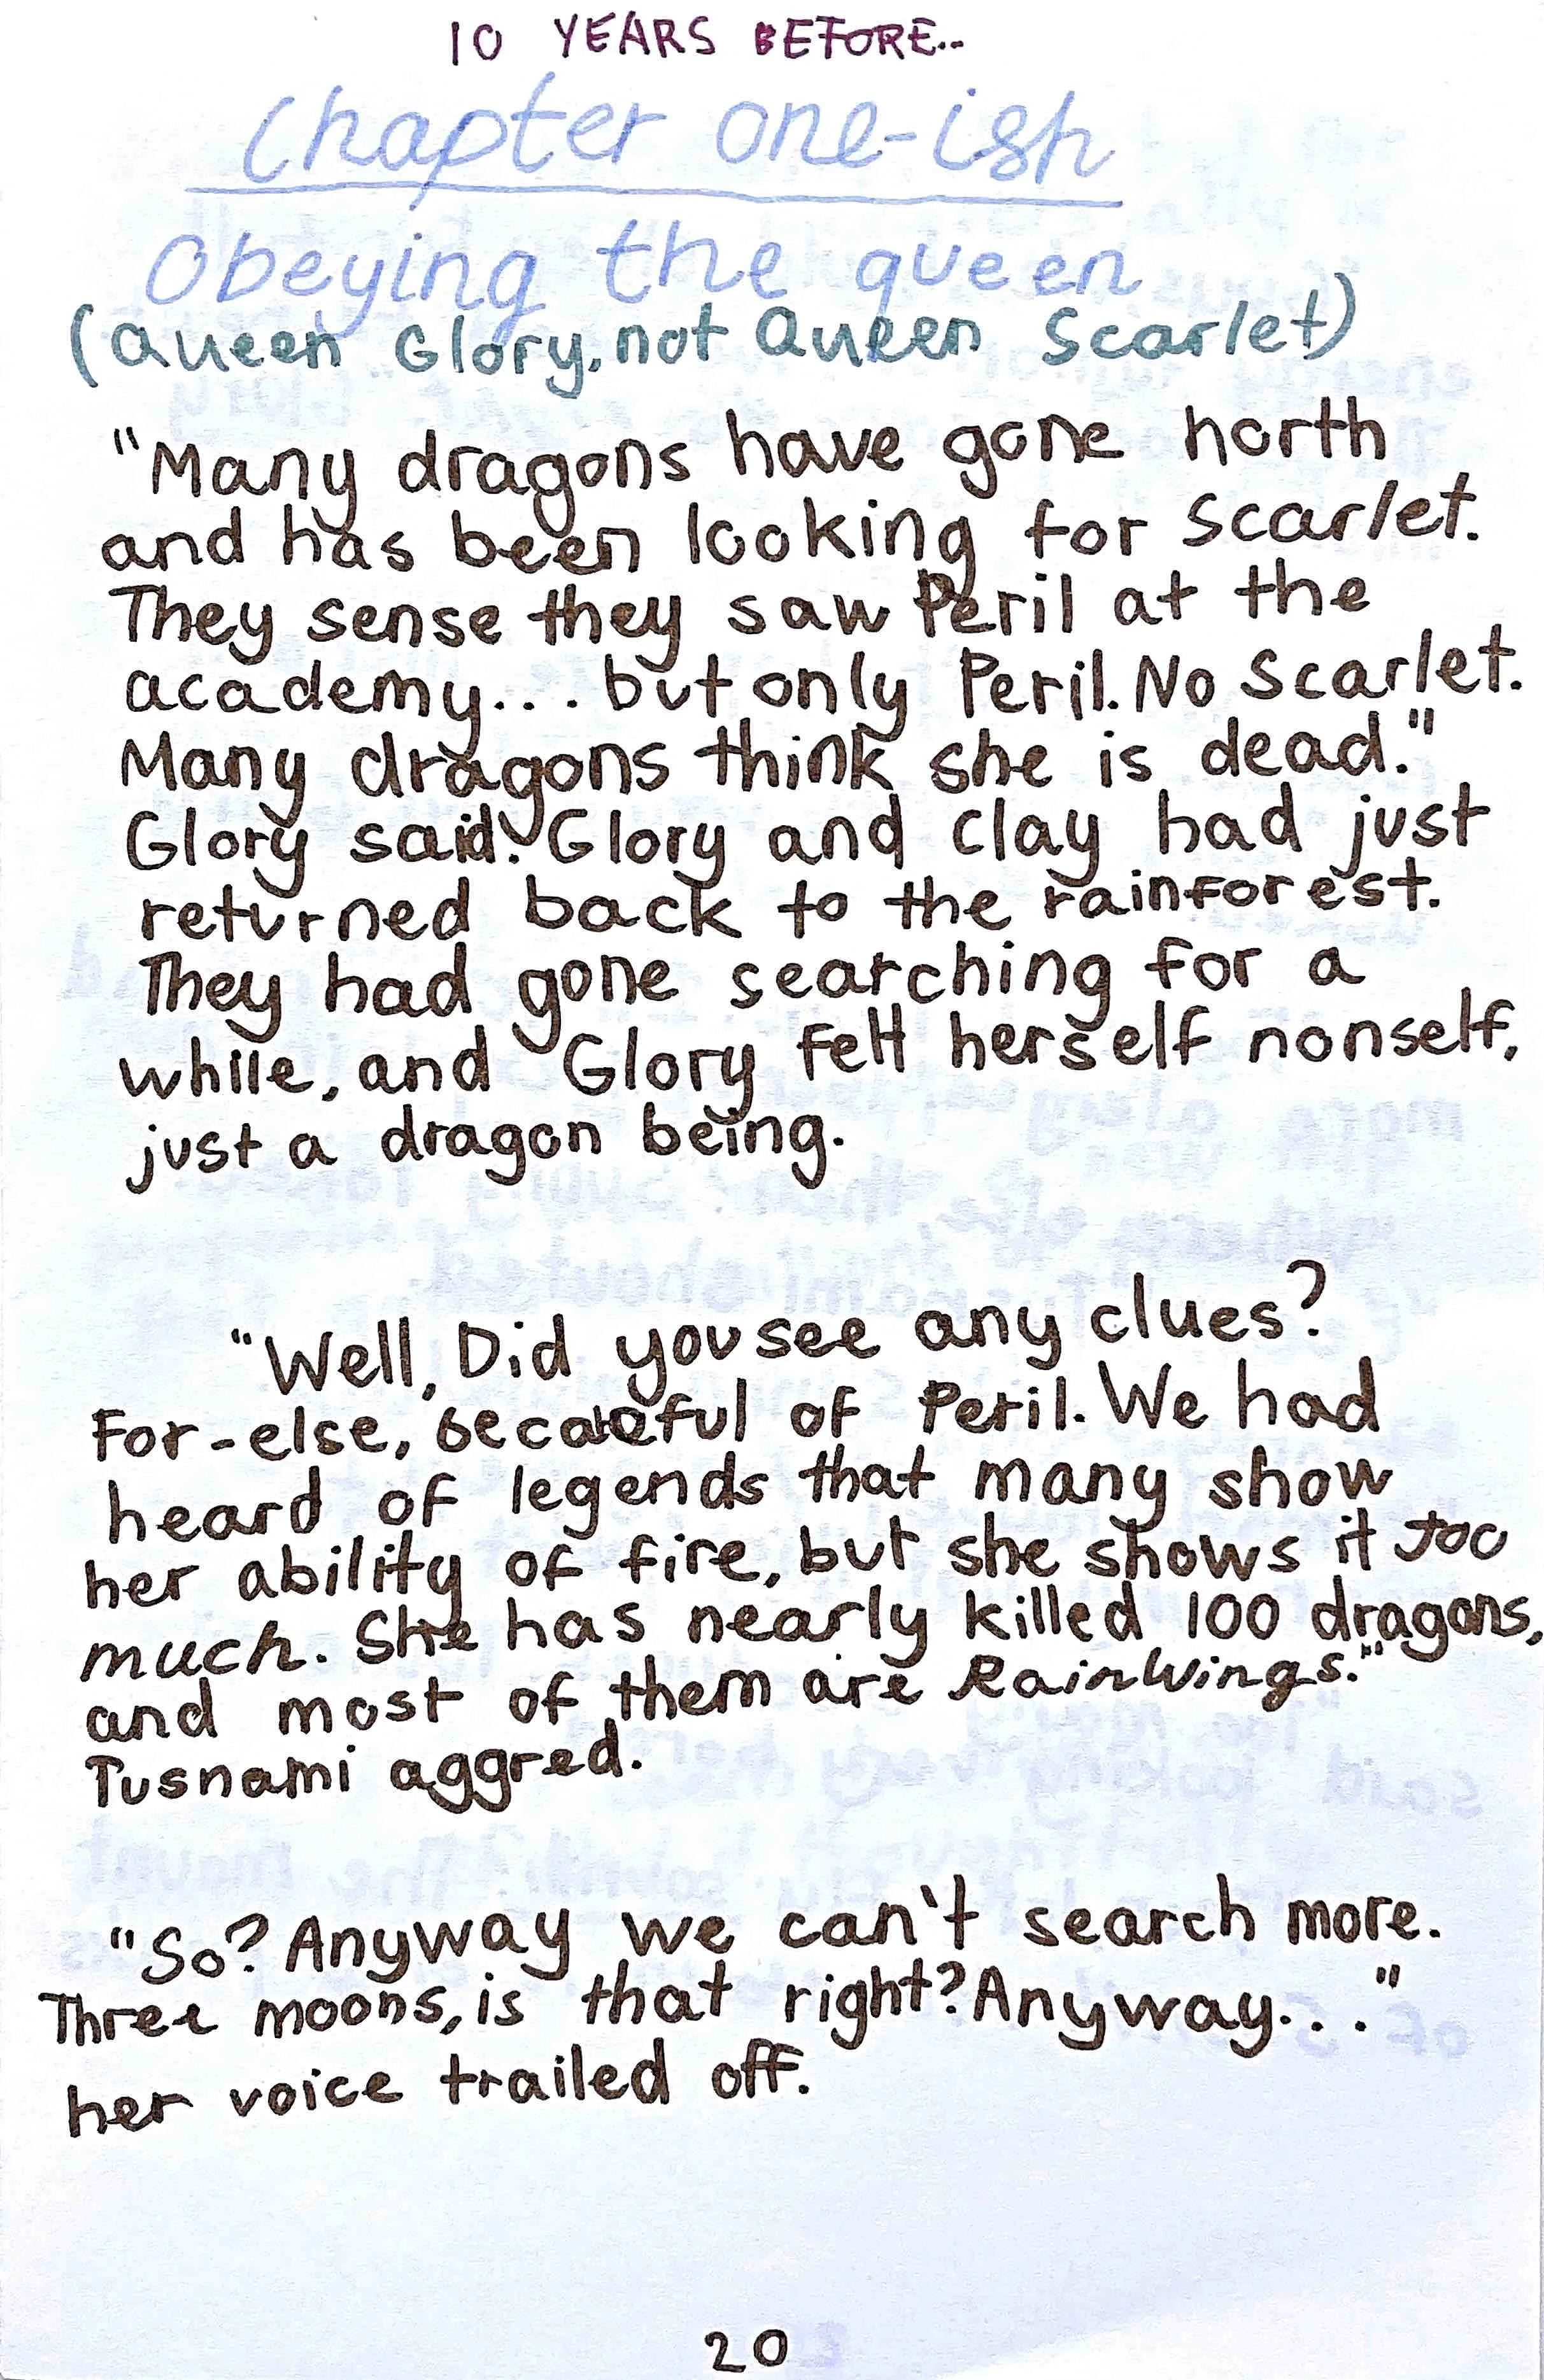 10 YEARS BEFORE..
Chapter one-ish
Obeying the queen
(Queen Glory, not Queen Scarlet)
"Many dragons have gone north
and has been looking for Scarlet.
They sense they saw Peril at the
academy... but only Peril. No Scarlet.
Many dragons think she is dead."
Glory said. Glory and Clay had just
returned back to the rainforest.
They had gone searching for a
while, and Glory felt herself nonself,
just a dragon being.
"Well, Did you see any clues?
For-else, be careful of Peril. We had
heard of legends that many show
her ability of fire, but she shows it too
much. She has nearly killed 100 dragons,
and most of them are RainWings."
Tusnami aggred.
"So? Anyway we can't search more.
Three moons, is that right? Anyway..."
her voice trailed off.
20